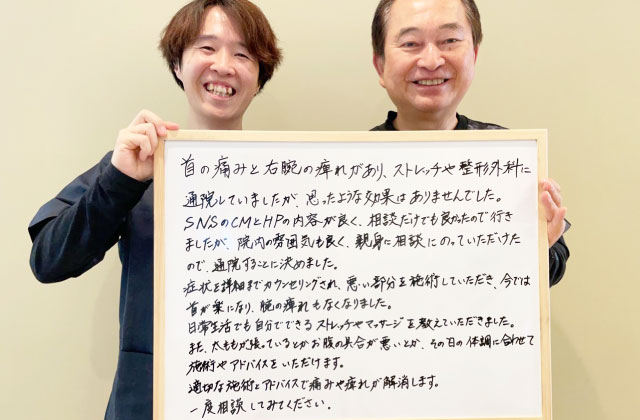 首の痛みと右腕の痺れがあり、ストレッチや整形外科に
通院していましたが、思ったような効果はありませんでした。
SNSのCMとHPの内容が良く、相談だけでも良かったので行き
ましたが、院内の雰囲気も良く、親身に相談にのっていただけた
ので、通院することに決めました。
症状を詳細までカウンセリングされ、悪い部分を施術していただき、今では
首が楽になり、腕の痺れもなくなりました。
日常生活でも自分でできるストレッチやマッサージを教えていただきました。
また、太ももが張っているとかお腹の具合が悪いとか、その日の体調に合わせて
施術やアドバイスをいただけます。
適切な施術とアドバイスで痛みや痺れが解消します。
一度相談してみてください。